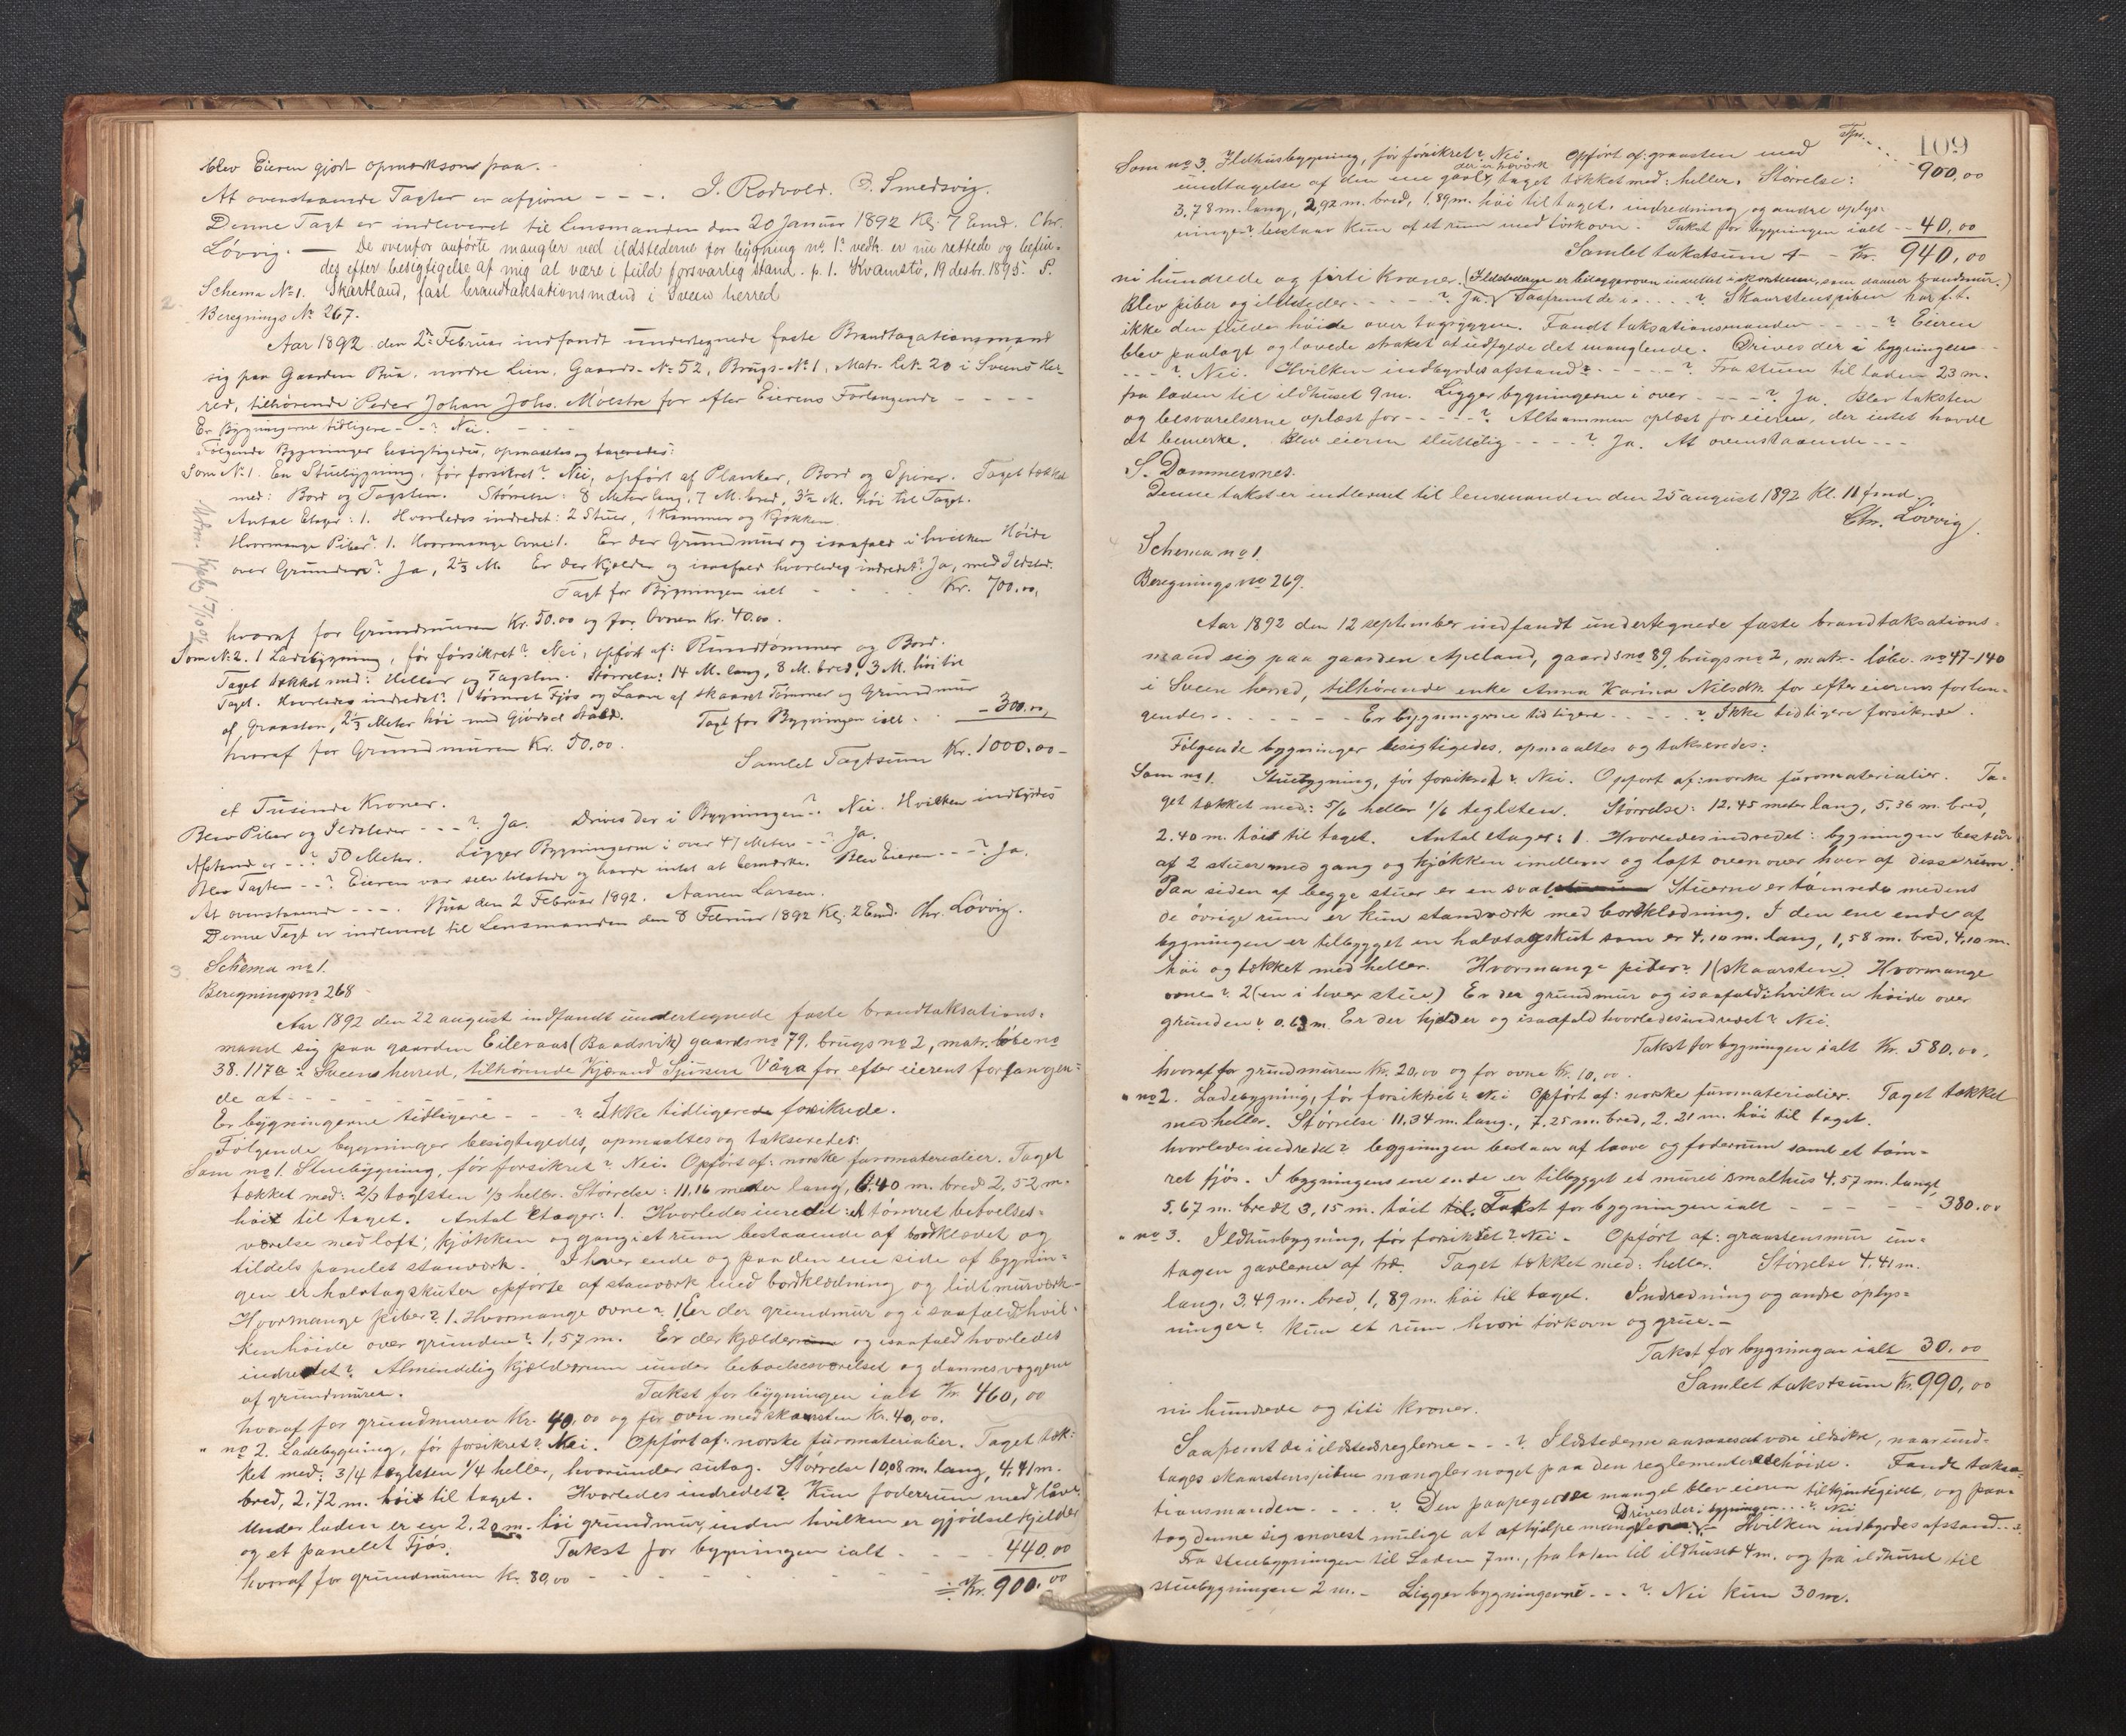 blev Eieren gjort opmærksom paa. -
At ovenstaaende Taxter er afgivne - - -. I. Rodvold. B. Smedsvig.
Denne Taxt er indleveret til Lensmanden den 20 Januar 1892 Kl. 7 Emd. Chr.
Lövvig. — De ovenfor anförte mangler ved ildstederne for bygning no. 1 vedk. er nu rettede og befin-
des efter besigtigelse af mig at være i fuld forsvarlig stand. p. t. Kvamstö, 19 desbr. 1895. S.
Skartland, fast brandtaksationsmand i Sveen herred
2
Schema No 1.
Beregnings No 267.
Aar 1892 den 2den Februar indfandt undertegnede faste Brandtaxationsmænd
sig paa Gaarden Bua, nordre Lien, Gaards-No 52, Brugs-No 1, Matr. Lit. 20 i Sveens Her-
red, tilhörende Peder Johan Johs. Mölstre for efter Eierens Forlangende - - - -
Er Bygningerne tidligere - - ? Nei. - - -
Fölgende Bygninger besigtigedes, opmaaltes og taxeredes:
Som No 1. En Stuebygning, för forsikret? Nei, opfört af Planker, Bord og Spirer. Taget tækket
med: Bord og Tagsten. Störrelse: 8 Meter lang, 7 M. bred, 3½ M. höi til Taget.
Antal Etager: 1. Hvorledes indredet: 2 Stuer, 1 Kammer og Kjökken.
Hvormange Piber? 1. Hvormange Ovne: 1. Er der Grundmur og isaafald i hvilken Höide
over Grunden? Ja, 2⅓ M. Er der Kjelder og isaafald hvorledes indredet? Ja, med Ildsted.
Taxt for Bygningen ialt - - - - Kr. 700.00,
hvoraf for Grundmuren Kr. 50.00 og for Ovnen Kr. 40.00.
Som No 2. 1 Ladebygning, för forsikret? Nei, opfört af: Rundtömmer og Bord.
Taget tækket med: Heller og Tagsten. Störrelse: 14 M. lang, 8 M. bred, 3 M. höi til
Taget. Hvorledes indredet: 1 tömret Fjös og Laave af skaaret Tömmer og Grundmur
af Graasten, 2⅓ Meter höi med Gjödsel Stald. Taxt for Bygningen ialt - - - 300.00,
hvoraf for Grundmuren Kr. 50.00.
Samlet Taxtsum Kr. 1000.00 -
et Tusinde Kroner.
Blev Piber og Ildsteder - - - ? Ja. Drives der i Bygningen - ? Nei. Hvilken indbyrdes
Afstand er - - ? 50 Meter. Ligger Bygningerne i over 47 Meter - - ? Ja.
Blev Taxten - - ? Eieren var selv tilstede og havde intet at bemærke. Blev Eieren - - - ? Ja.
At ovenstaaende - - -. Bua den 2 Februar 1892. Aanen Larsen.
Denne Taxt er indleveret til Lensmanden den 8 Februar 1892 Kl. 2 Emd. Chr. Lövvig.
3
Schema no 1.
Beregningsno 268
Aar 1892 den 22 august indfandt undertegnede faste brandtaksations-
mand sig paa gaarden Eileraas (Baadsvik) gaards no 79. brugs no 2, matr. löbe no
38. 117a i Sveens herred, tilhörende Kjærand Sjursen Våga for efter eierens forlangen-
de at - - - - - - - -
Er bygningerne tidligere - - - ? Ikke tidligere forsikrede.
Fölgende bygninger besigtigedes, opmaaltes og takseredes:
Som no 1. Stuebygning, för forsikret? Nei. Opfört af: norske furomaterialier. Taget
tækket med: 2/3 tæglsten 1/3 heller. Störrelse: 11,16 meter lang, 6.40 m. bred 2,52 m.
höit til taget. Antal etager: 1. Hvorledes inredet: et tömret beboelses-
værelse med loft; kjökken og gang i et rum bestaaende af bordklædet og
tildels panelet stavværk. I hver ende og paa den ene side af bygnin-
gen er halvtagskuter opförte af stavværk med bordklædning og lidt murværk -
Hvormange piber? 1. Hvormange ovne? 1. Er der grundmur og i saafald i hvil-
ken höide over grunden? 1,57 m. Er der kjælder og isaafald hvorledes
indredet? Almindelig kjælderrum under beboelsesværelset og dannes væggene
af grundmuren. Takst for bygningen ialt Kr. 460,00
hvoraf for grundmuren Kr. 40,00 og for ovn med skaarsten Kr. 40,00.
" no 2. Ladebygning, för forsikret? Nei. Opfört af: norske furomaterialier. Taget tæk-
ket med: 3/4 tæglsten 1/4 heller, hvorunder sutag. Störrelse 10,08 m. lang, 4,41 m.
bred, 2,72 m. höit til taget. Hvorledes indredet? Kun foderrum med låve.
Under laden er en 2,20 m. höi grundmur, inden hvilken er gjödselkjelder
og et panelet Fjös. Takst for bygningen ialt - - - - 440,00
hvoraf for grundmuren Kr. 80,00 - - - - - - - - - -
Kr. 900,00
109
Tpr. - - - - 900,00
Som no 3. Ildhusbygning, för forsikret? Nei. Opfört af: graasten med
undtagelse af den ene gavl, taget tækket med: heller. Störrelse:
3,78 m. lang, 2,92 m. bred, 1,89 m. höi til taget. indredning og andre oplys-
ninger? bestaar kun af et rum med törkovn. Takst for bygningen ialt - - 40,00
Samlet takstsum - - Kr. 940,00
ni hundrede og firti Kroner.
Blev piber og ildsteder - - - - - ? Ja. Saafremt de i - - - - ? Skaarstenspiben har f. t.
ikke den fulde höide over tagryggen. Fandt taksationsmanden - - - - ? Eieren
blev paalagt og lovede straket at udfylde det manglende. Drives der i bygningen - -
- - - ? Nei. Hvilken indbyrdes afstand? - - - - - ? Fra stuen til laden 23 m.
fra laden til ildhuset 9 m. Ligger bygningerne i over - - - - ? Ja. Blev taksten
og besvarelserne oplæst for - - - - ? Altsammen oplæst for eieren, der intet havde
at bemerke. Blev eieren sluttelig - - - - ? Ja. At ovenstaaende - - -
S. Dommersnes.
Denne takst er indleveret til lensmanden den 25 august 1892 Kl. 11 fmd.
Chr. Lövvig.
Schema no 1.
Beregnings no 269.
Aar 1892 den 12 september indfandt undertegnede faste brandtaksations-
mand sig paa gaarden Apeland, gaards no 89, brugs no 2, matr. löbe. no 47-140
i Sveen herred, tilhörende enke Anna Karina Nilsdtr. for efter eierens forlan-
gende - - - - - - - Er bygningerne tidligere - - - - - ? Ikke tidligere forsikrede.
Fölgende bygninger besigtigedes, opmaaltes og takseredes:
Som no 1. Stuebygning, för forsikret? Nei. Opfört af: norske furomaterialier. Ta-
get tækket med: 5/6 heller 1/6 teglsten. Störrelse: 12,45 meter lang, 5,36 m. bred,
2.40 m. höit til taget. Antal etager: 1. Hvorledes indredet: bygningen bestaar
af 2 stuer med gang og kjökken imellem og loft ovenover hver af disse rum.
Paa siden af begge stuer er en sval. Stuerne er tömrede medens
de övrige rum er kun standværk med bordklædning. I den ene ende af
bygningen er tilbygget en halvtagskut som er 4,10 m. lang, 1,58 m. bred, 4,10 m.
höi og tækket med heller. Hvormange piber? 1 (skaarsten). Hvormange
ovne? 2 (en i hver stue) Er der grundmur og isaafald i hvilken höide over
grunden? 0.63 m. Er der kjelder og isaafald hvorledes indredet? Nei.
Takst for bygningen ialt Kr. 580,00,
hvoraf for grundmuren Kr. 20,00 og for ovne Kr. 10,00.
" no 2. Ladebygning, för forsikret? Nei Opfört af: norske furomaterialier. Taget tækket
med heller. Störrelse 11,34 m. lang., 7,25 m. bred, 2,21 m. höi til taget.
hvorledes indredet? bygningen bestaar af laave og foderrum samt et töm-
ret fjös. I bygningens ene ende er tilbygget et muret smalhus 4,57 m. langt,
5,67 m. bredt 3,15 m. höit. Takst for bygningen ialt - - - - - 380.00
" no 3. Ildhusbygning, för forsikret? Nei - Opfört af: graastensmur un-
tagen gavlerne af træ. Taget tækket med: heller. Störrelse 4,41 m.
lang, 3,49 m. bred, 1,89 m. höi til taget. Indredning og andre oplys-
ninger? Kun et rum, hvori törkovn og grue. -
Takst for bygningen ialt 30,00
Samlet takstsum Kr. 990,00
ni hundrede og niti kroner.
Saafremt de i ildstedsreglerne - - - ? Ildstederne ansees at være ildsikre, naar und-
tages skaarstenspiben mangler noget paa den reglementerede höide. Fandt taksa-
tionsmanden - - - - ? Den paapegede mangel blev eieren tilkjendegivet, og paa-
tog denne sig snarest muligt at afhjælpe manglen. Drives der i bygningen - - - ? Nei Hvilken indbyrdes afstand - - ?
Fra stuebygningen til Laden 7 m., fra laden til ildhuset 4 m. og fra ildhuset til
stuebygningen 2 m. - Ligger bygningerne - - - ? Nei kun 30 m.